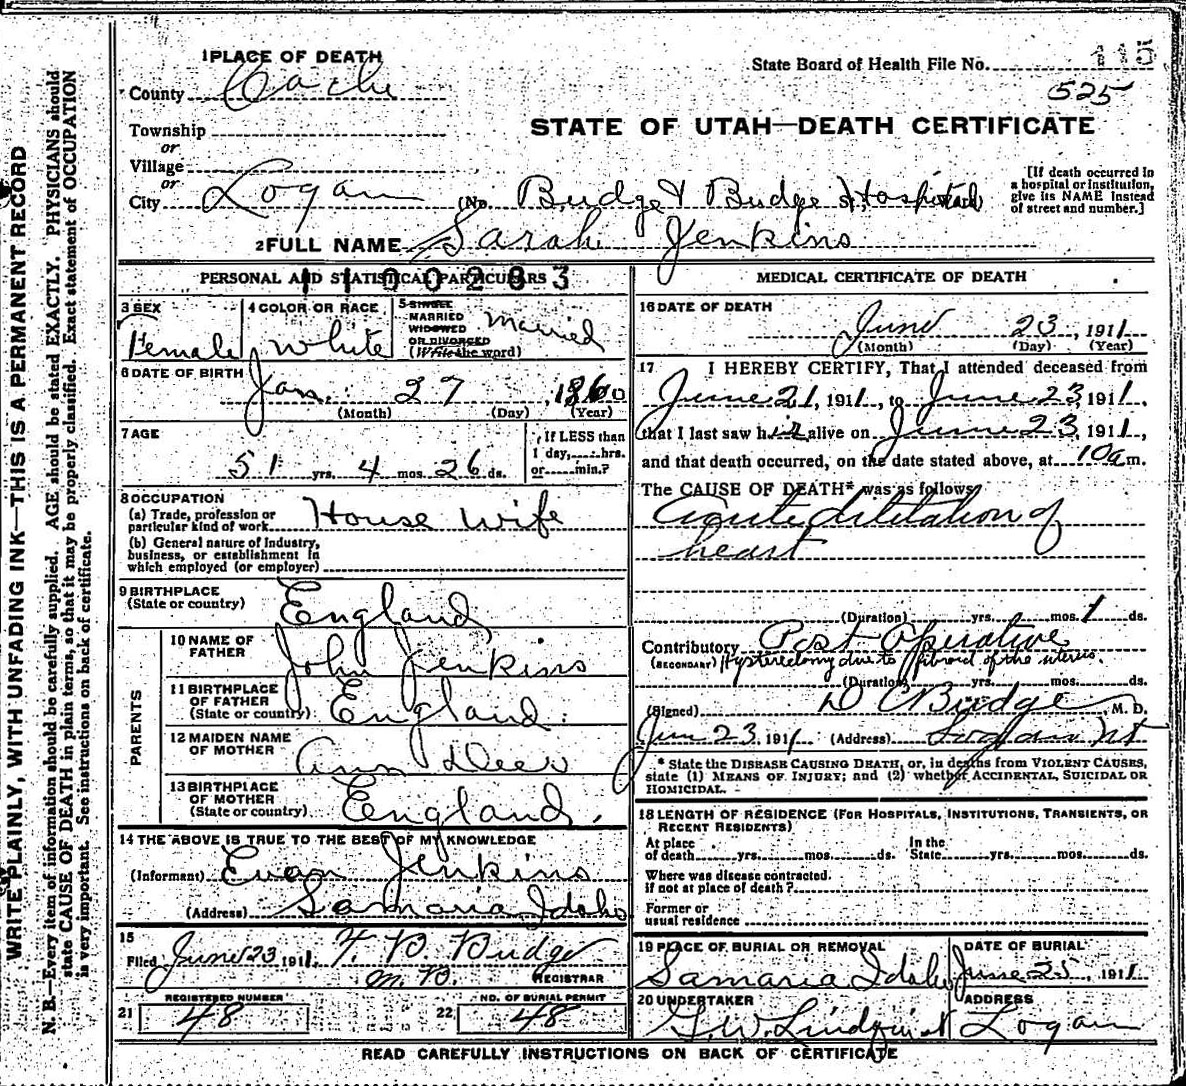 WRITE PLAINLY, WITH UNFADING INK—THIS IS A PERMANENT RECORD
N. B.—Every item of information should be carefully supplied. AGE should be stated EXACTLY. PHYSICIANS should
state CAUSE OF DEATH in plain terms, so that it may be properly classified. Exact statement of OCCUPATION
is very important. See instructions on back of certificate.
1 PLACE OF DEATH
County Cache
Township
or
Village
or
City Logan (No. Budge & Budge Hospital
State Board of Health File No. 115
525
STATE OF UTAH—DEATH CERTIFICATE
[If death occurred in
a hospital or institution,
give its NAME instead
of street and number.]
2 FULL NAME Sarah Jenkins
PERSONAL AND STATISTICAL PARTICULARS
1100283
3 SEX
Female
4 COLOR OR RACE
White
5 SINGLE
MARRIED
WIDOWED
OR DIVORCED
(Write the word)
Married
6 DATE OF BIRTH
Jan. 27, 1860
(Month) (Day) (Year)
7 AGE
51 yrs. 4 mos. 26 ds.
If LESS than
1 day, hrs.
or min.?
8 OCCUPATION
(a) Trade, profession or
particular kind of work House Wife
(b) General nature of industry,
business, or establishment in
which employed (or employer)
9 BIRTHPLACE
(State or country) England
PARENTS
10 NAME OF
FATHER John Jenkins
11 BIRTHPLACE
OF FATHER
(State or country) England.
12 MAIDEN NAME
OF MOTHER Ann
13 BIRTHPLACE
OF MOTHER
(State or country) England.
14 THE ABOVE IS TRUE TO THE BEST OF MY KNOWLEDGE
(Informant) Evan Jenkins
(Address) Samaria Idaho
15
Filed June 23 1911. Budge
M.D. REGISTRAR
21 REGISTERED NUMBER
48
22 NO. OF BURIAL PERMIT
48
MEDICAL CERTIFICATE OF DEATH
16 DATE OF DEATH
June 23, 1911
(Month) (Day) (Year)
17 I HEREBY CERTIFY, That I attended deceased from
June 21, 1911, to June 23, 1911,
that I last saw her alive on June 23, 1911,
and that death occurred, on the date stated above, at 10 am.
The CAUSE OF DEATH* was as follows
Acute dilitation of
heart
(Duration) yrs. mos. 1 ds.
Contributory Post Operative
(SECONDARY) Hysterectomy due to fibroid of the uterus.
(Duration) yrs. mos. ds.
(Signed) D C Budge M. D.
June 23, 1911 (Address) Logan Ut
* State the DISEASE CAUSING DEATH, or, in deaths from VIOLENT CAUSES,
state (1) MEANS OF INJURY; and (2) whether ACCIDENTAL, SUICIDAL OR
HOMICIDAL.
18 LENGTH OF RESIDENCE (FOR HOSPITALS, INSTITUTIONS, TRANSIENTS, OR
RECENT RESIDENTS)
At place
of death yrs. mos. ds.
In the
State yrs. mos. ds.
Where was disease contracted,
if not at place of death?
Former or
usual residence
19 PLACE OF BURIAL OR REMOVAL
Samaria Idaho
DATE OF BURIAL
June 25, 1911
20 UNDERTAKER
G.W. Lindquist
ADDRESS
Logan
READ CAREFULLY INSTRUCTIONS ON BACK OF CERTIFICATE